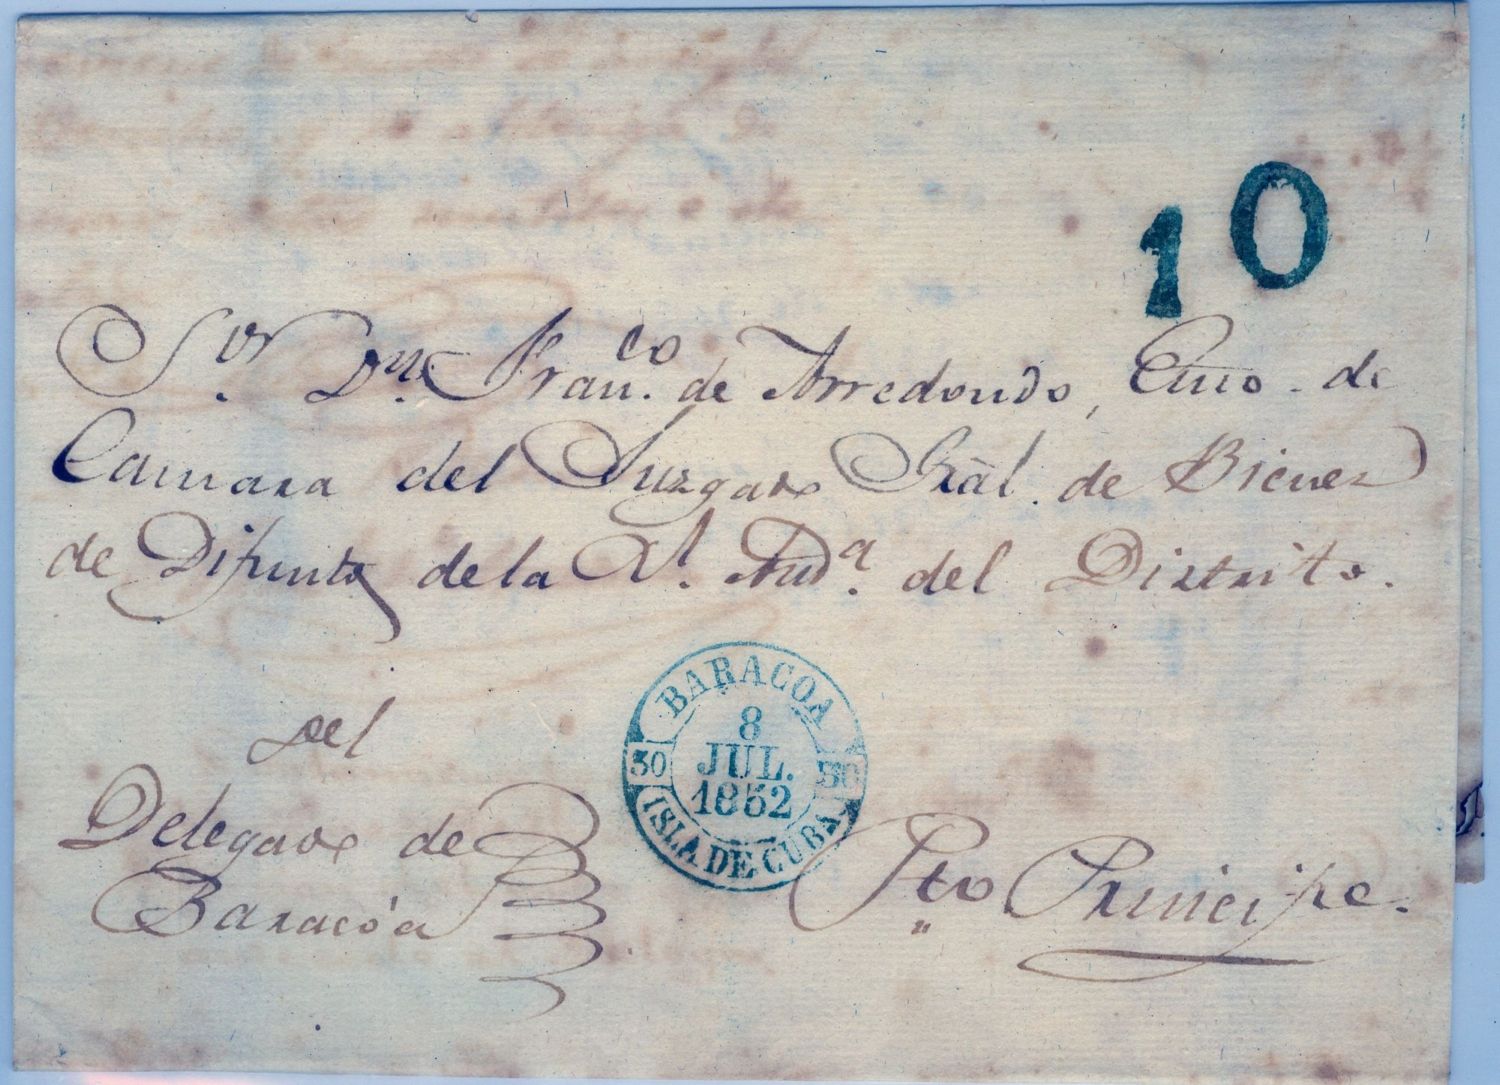 10
Sor. Dn. Franco. de Arredondo, Esno. de
Camara del Juzgado Gral. de Bienes
de Difuntos de la Rl. Auda. del Distrito.
BARACOA
8
JUL.
1852
30 30
ISLA DE CUBA
del
Delegado de
Baracóa
Pto. Principe.